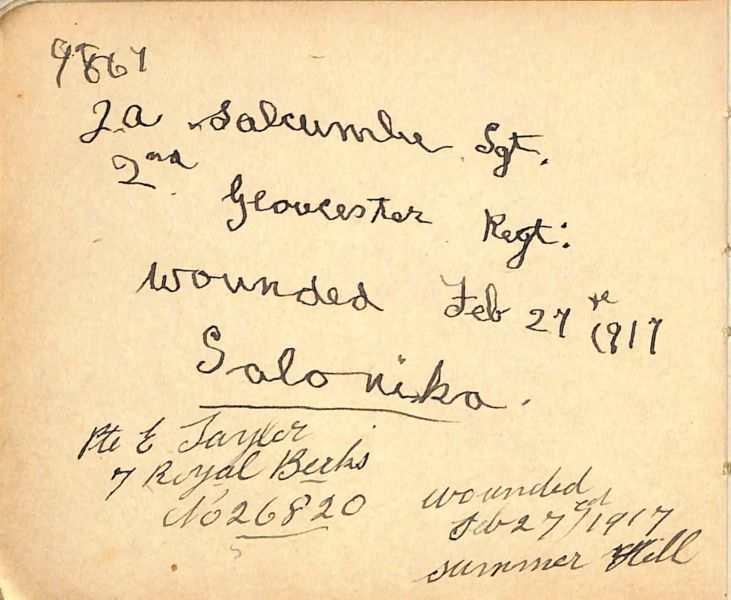 9867
J.A Salcumbe Sgt.
2nd Gloucester Regt:
wounded Feb 27 1917
Salonika.
Pte E Taylor
7 Royal Berks
No 26820
wounded
Feb 27 1917
summer Hill